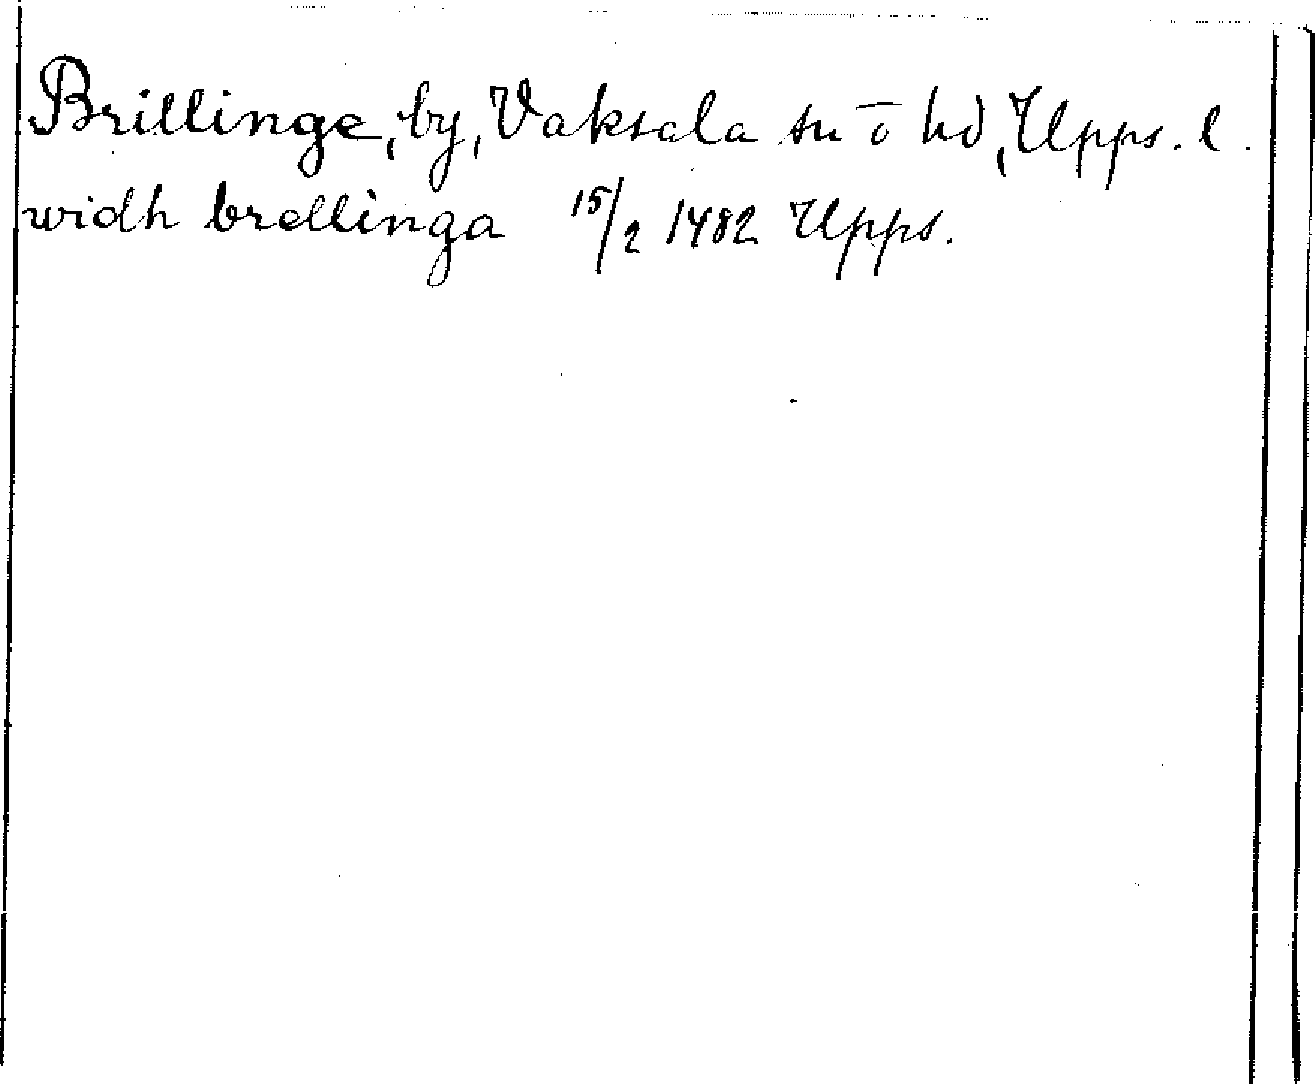 Brillinge, by, Vaksala sn o̅ hd, Upps. l.
widh brellinga 15/2 1482 Upps.